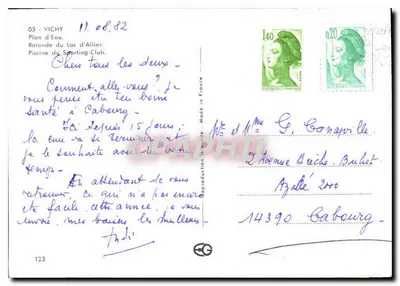 03 - VICHY
11.08.82
Plan d'Eau.
Rotonde du Lac d'Allier.
Piscine du Sporting-Club.
1,40
0,20
Chers tous les deux -
Comment allez-vous ? je
vous pense en bonne
santé à Cabourg -
Ici depuis 15 jours,
la cure va se terminer et
je le souhaite avec le
temps -
En attendant de vous
retrouver, ce qui n'a pas encore
été facile cette année, je vous
envoie mes baisers les meilleurs
Mr et Mme G.
2 Avenue
Azalée 2000
14390 - Cabourg -
Reproduction
Made in France
CG
123